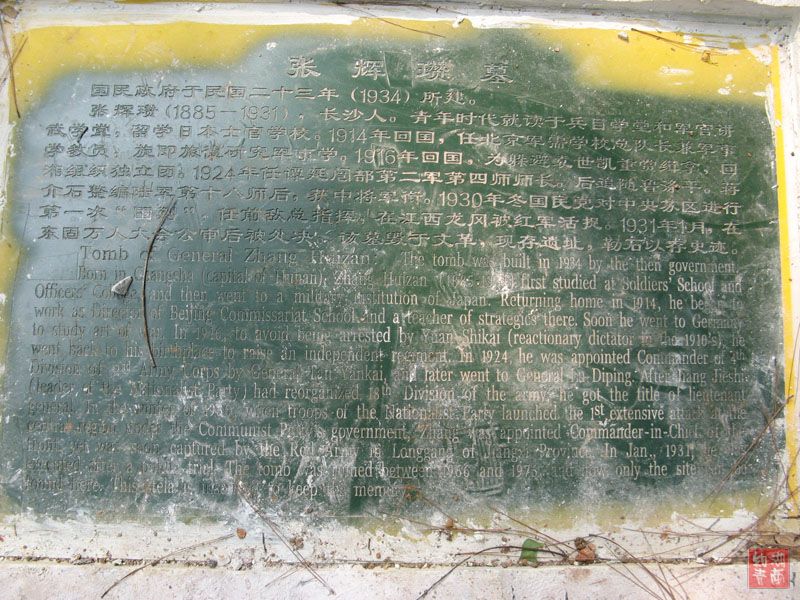 张辉瓒墓
国民政府于民国二十三年(1934)所建。
张辉瓒(1885—1931),长沙人。青年时代就读于兵目学堂和军官讲
武学堂。留学日本士官学校。1914年回国,任北京军需学校总队长兼军事
学教员,旋即 研究军事学。1916年回国,为躲避袁世凯 的缉令,回
湘组织独立团。1924年任谭延闿部第二军第四师师长。后追随鲁涤平。蒋
介石整编陆军第十八师后,获中将军衔。1930年冬国民党对中央苏区进行
第一次“围剿”,任前敌总指挥,在江西龙冈被红军活捉。1931年1月,在
东固万人大会公审后被处决。该墓毁于文革,现存遗址,勒石以存史迹。
Tomb of General Zhang Huizan The tomb was built in 1934 by the then government.
Born in Changsha (capital of Hunan), Zhang Huizan first studied at Soldiers' School and
Officers' College and then went to a military institution of Japan. Returning home in 1914, he began to
work as Director of Beijing Commissariat School and a teacher of strategics there. Soon he went to Germany
to study art of war. In 1916, to avoid being arrested by Yuan Shikai (reactionary dictator in the 1910's), he
went back to his birthplace to raise an independent regiment. In 1924, he was appointed Commander of 4th
Division of Army Corps by General Tan Yankai, and later went to General Lu Diping. After Jiang Jieshi
(leader of the Nationalist Party) had reorganized 18th Division of the army, he got the title of lieutenant
general. In the winter of 1930, when troops of the Nationalist Party launched the 1st extensive attack at the
central region under the Communist Party's government, Zhang was appointed Commander-in-Chief of the
front, yet was soon captured by the Red Army in Longgang of Jiangxi Province. In Jan., 1931, he
executed after a public trial. The tomb was ruined between 1966 and 1976, and now, only the site
found here. This stela is to keep the memory.